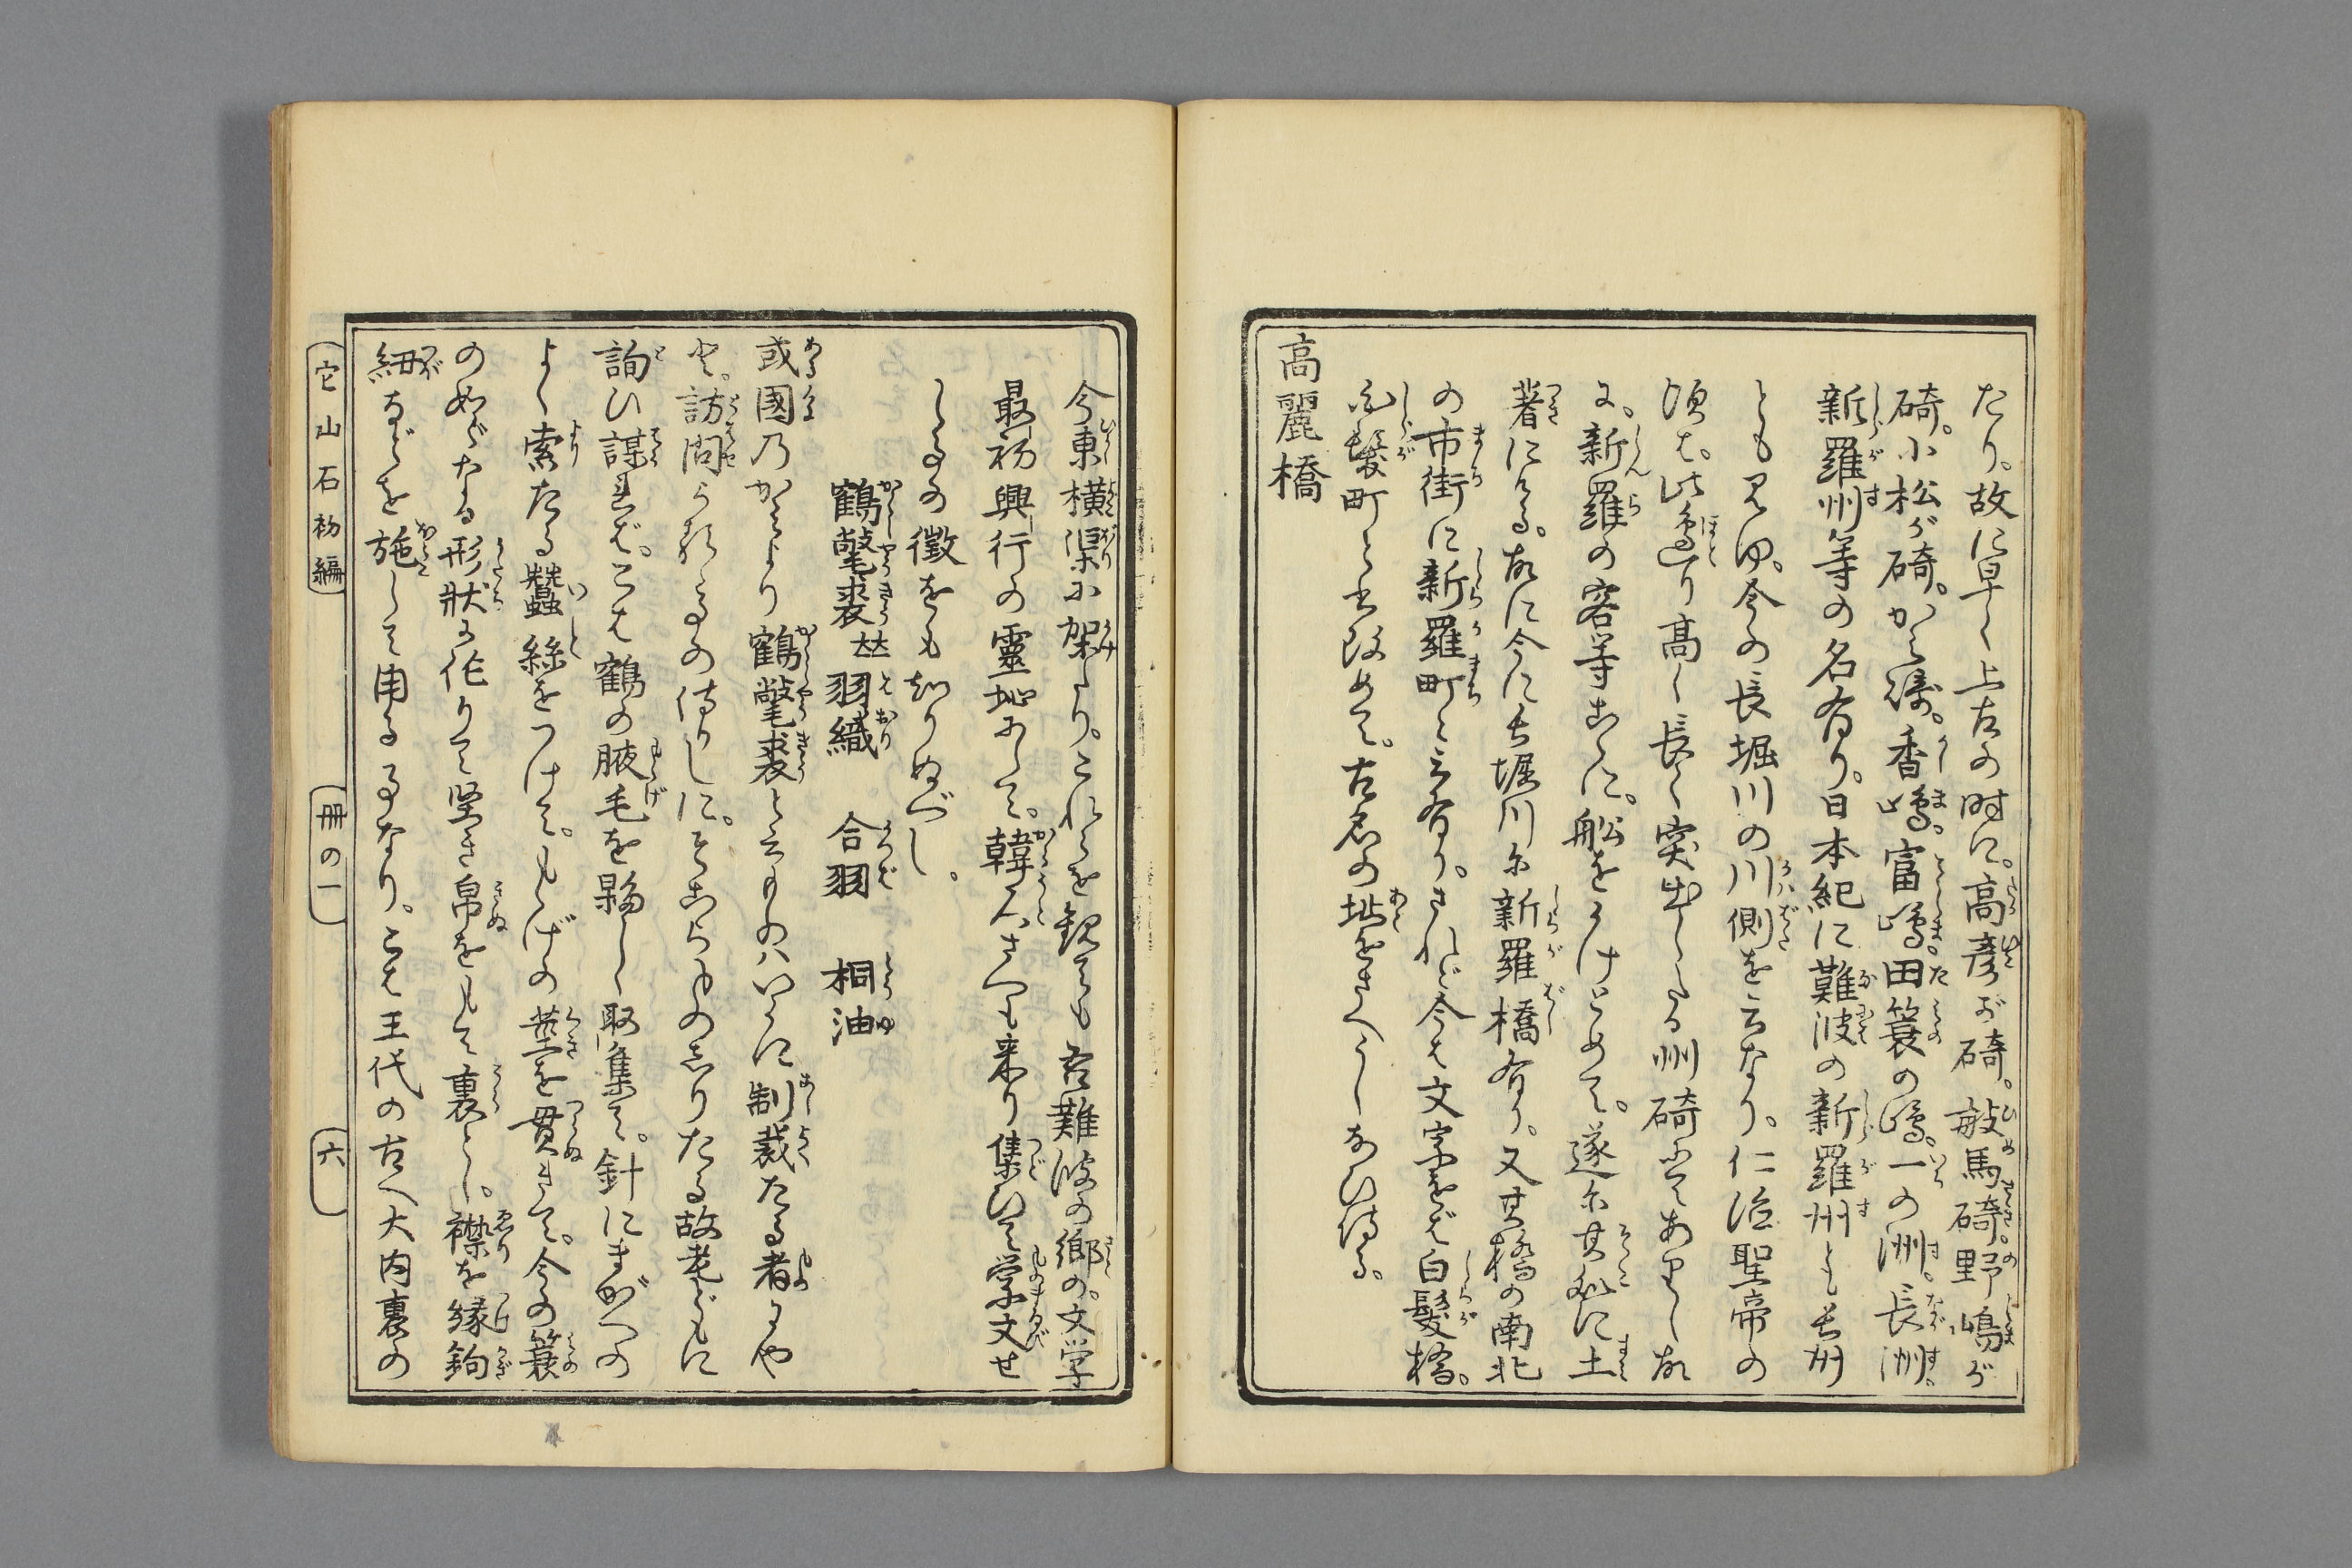 たり。故に早く上古の時に。高彦が碕。敏馬碕。野嶋が
碕。小松が碕。から碕。香嶋。富嶋。田簑の嶋。一の洲。長洲。
新羅州等の名有り。日本紀に難波の新羅州とも長州
とも見ゆ。今の長堀川の川側を云なり。仁徳聖帝の
頃は。此邊り高く長く突出したる州碕にてありし故
に。新羅の客等こゝに。舩をうけとめて。遂尓其処に土
著にける。故に今に長堀川尓新羅橋有り。又其橋の南北
の市街に新羅町と云有り。されど今は文字をば白髪橋。
白髪町と書改めて。古名の址をさへうしなひ侍る。
高麗橋
今東横渠に架たり。これらを観ても吾難波の郷の。文学
最初興行の霊地にして。韓人さへも来り集ひて学文せ
しるの徴をも知りぬべし。
鶴氅裘 羽織 合羽 桐油
或國乃かたより鶴氅裘と云ものハいかに制裁たる者にや
と。訪問られるの侍りしに。そこらのしりたる故老どもに
詢ひ謀れば。こは鶴の腋毛を夥しく取集て。針にまがへの
よく索たる蠶絲をつけて。もゝげの茎を貫きて。今の簔
の如くたる形状に作りて堅き帛をもて裏とし。襟を縁鉤
紐などを施して用る事なり。こは王代の古へ大内裏の
它山石初編
冊の一
六